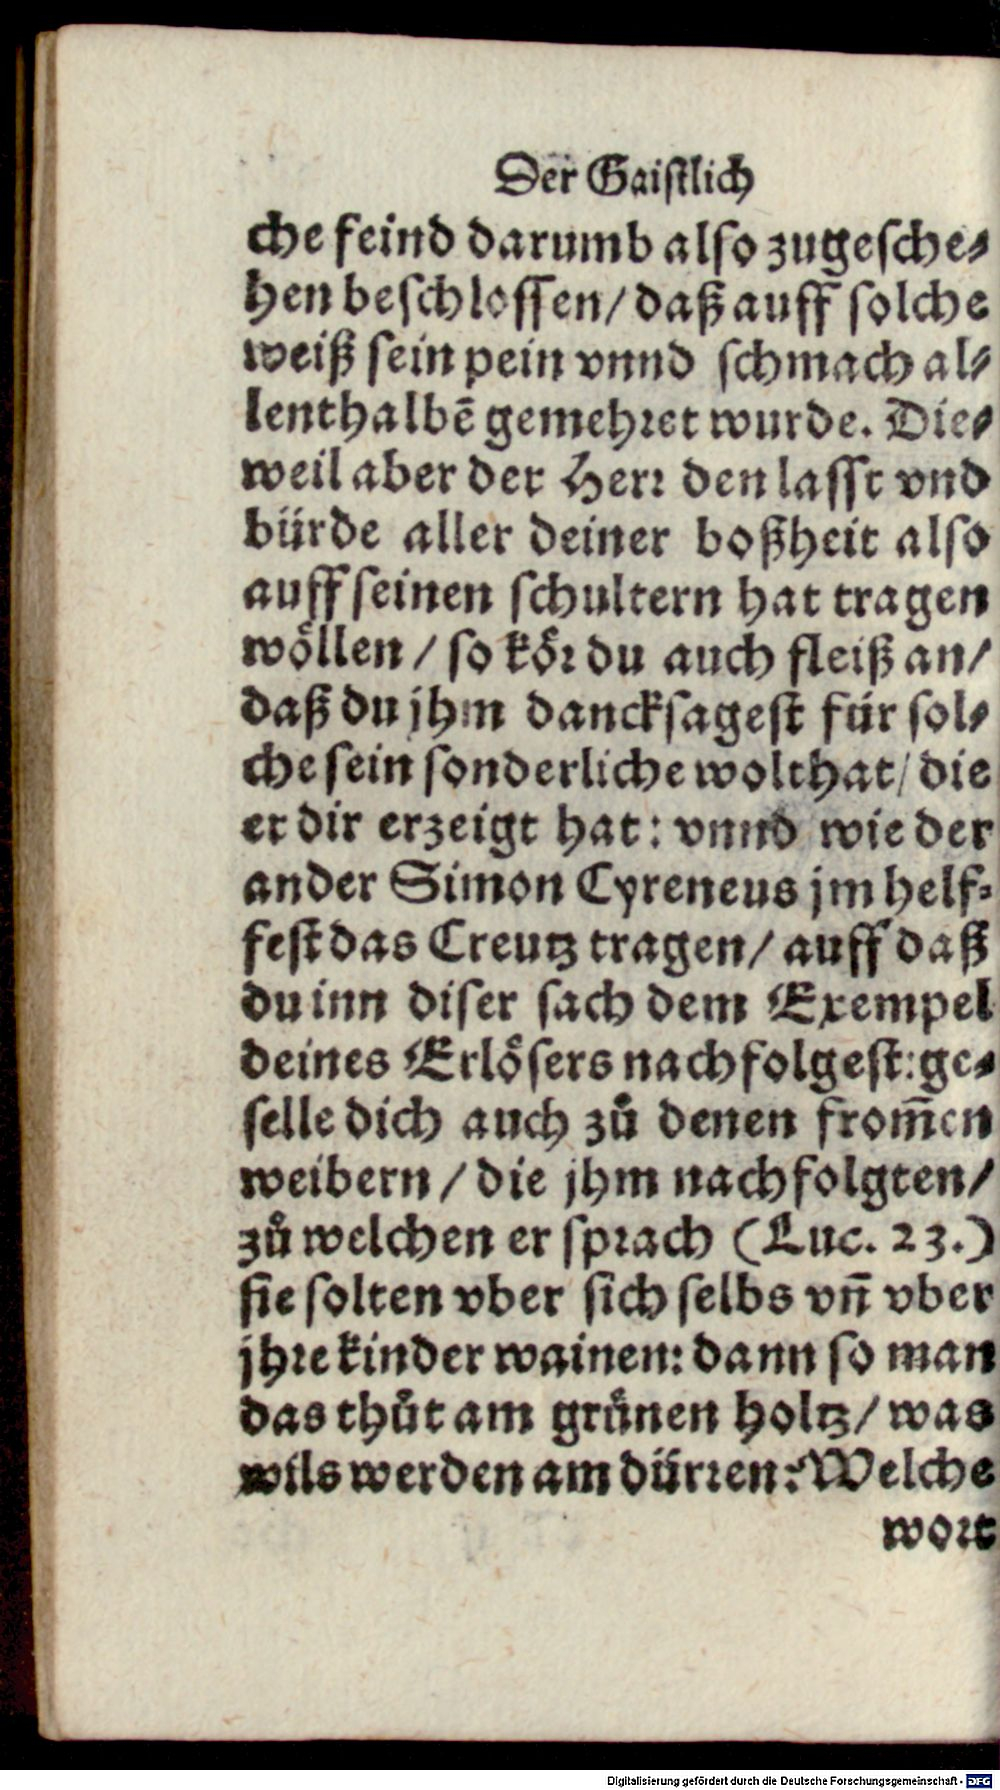 Der Gaistlich
che feind darumb also zugesche⸗
hen beschlossen/ daß auff solche
weiß sein pein vnnd schmach al⸗
lenthalbē gemehret wurde. Die⸗
weil aber der Herr den lasst vnd
bürde aller deiner boßheit also
auff seinen schultern hat tragen
wöllen / so kör du auch fleiß an/
daß du jhm dancksagest für sol⸗
che sein sonderliche wolthat/ die
er dir erzeigt hat: vnnd wie der
ander Simon Cyreneus jm helf⸗
fest das Creutz tragen/ auff daß
du inn diser sach dem Exempel
deines Erlösers nachfolgest: ge⸗
selle dich auch zů denen from̄en
weibern / die jhm nachfolgten/
zů welchen er sprach (Luc. 23.)
sie solten vber sich selbs vn̄ vber
jhre kinder wainen: dann so man
das thůt am grünen holtz/ was
wils werden am dürren: Welche
wort
Digitalisierung gefördert durch die Deutsche Forschungsgemeinschaft - DFG